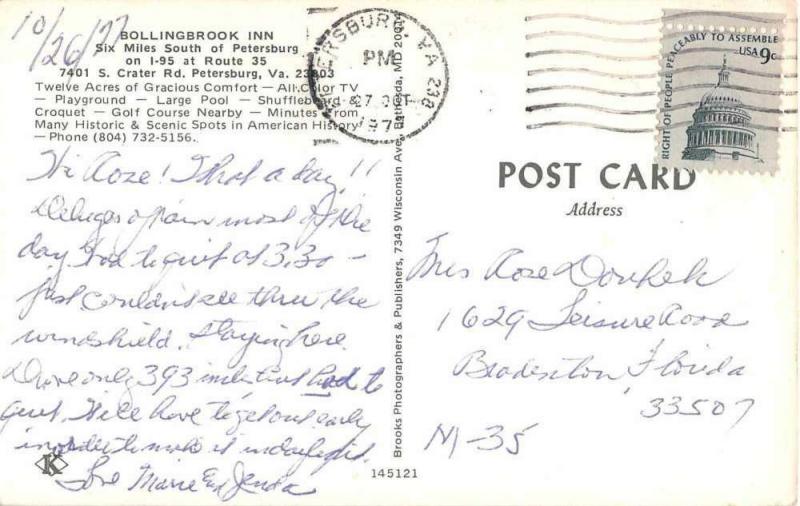 10/26/77
BOLLINGBROOK INN
Six Miles South of Petersburg
on I-95 at Route 35
7401 S. Crater Rd. Petersburg, Va. 23803
Twelve Acres of Gracious Comfort — All Color TV
— Playground — Large Pool — Shuffleboard &
Croquet — Golf Course Nearby — Minutes From
Many Historic & Scenic Spots in American History
— Phone (804) 732-5156.
Hi Roze! What a day!!
Deluges of rain most of the
day. Had to quit at 3.30 —
just couldn't see thru the
windshield. Staying here.
Drove only 393 miles but had to
quit. We'll have to get out early
in order to make it in daylight.
Love Marie and
K
Brooks Photographers & Publishers, 7349 Wisconsin Ave., Bethesda, MD 20014
145121
PETERSBURG, VA 238
PM
27 OCT
197
RIGHT OF PEOPLE PEACEABLY TO ASSEMBLE
USA 9c
POST CARD
Address
Mrs Roze
1629 Leisure Road
Bradenton, Florida
33507
M-35